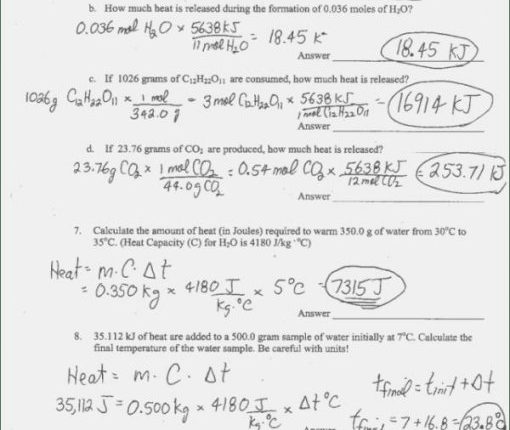 b. How much heat is released during the formation of 0.036 moles of H₂O?
0.036 mol H₂O × 5638 kJ / 11 mol H₂O = 18.45 k
Answer 18.45 kJ
c. If 1026 grams of C₁₂H₂₂O₁₁ are consumed, how much heat is released?
1026g C₁₂H₂₂O₁₁ × 1 mol / 342.0 g = 3 mol C₁₂H₂₂O₁₁ × 5638 kJ / 1 mol C₁₂H₂₂O₁₁ = 16914 kJ
Answer
d. If 23.76 grams of CO₂ are produced, how much heat is released?
23.76g CO₂ × 1 mol CO₂ / 44.0g CO₂ = 0.54 mol CO₂ × 5638 kJ / 12 mol CO₂ = 253.71 kJ
Answer
7. Calculate the amount of heat (in Joules) required to warm 350.0 g of water from 30°C to
35°C. (Heat Capacity (C) for H₂O is 4180 J/kg·°C)
Heat = m·C·Δt
= 0.350 kg × 4180 J / kg·°C × 5°C = 7315 J
Answer
8. 35.112 kJ of heat are added to a 500.0 gram sample of water initially at 7°C. Calculate the
final temperature of the water sample. Be careful with units!
Heat = m · C · Δt
tfinal = tinit + Δt
35,112 J = 0.500 kg × 4180 J / kg·°C × Δt °C
= 7 + 16.8 = 23.8°